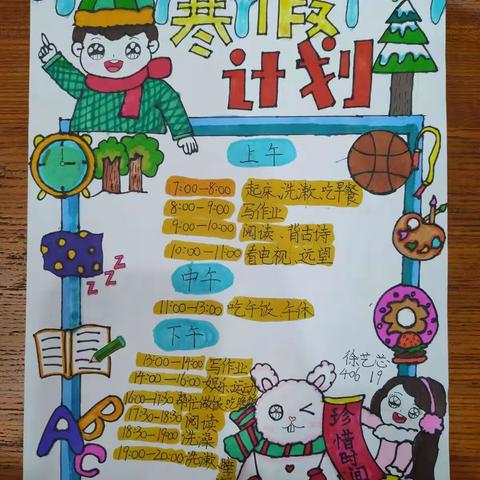 寒假
计划
上午
7:00—8:00 起床、洗漱、吃早餐
8:00—9:00 写作业
9:00—10:00 阅读、背古诗
10:00—11:00 看电视、远望
中午
11:00—13:00 吃午饭、午休
下午
13:00—14:00 写作业
14:00—16:00 娱乐、运动
16:00—17:30 帮忙做饭、吃晚
17:30—18:30 阅读
18:30—19:00 洗澡
19:00—20:00 洗漱、睡
徐艺芯
406 19
珍惜时间
Z Z Z
A B C